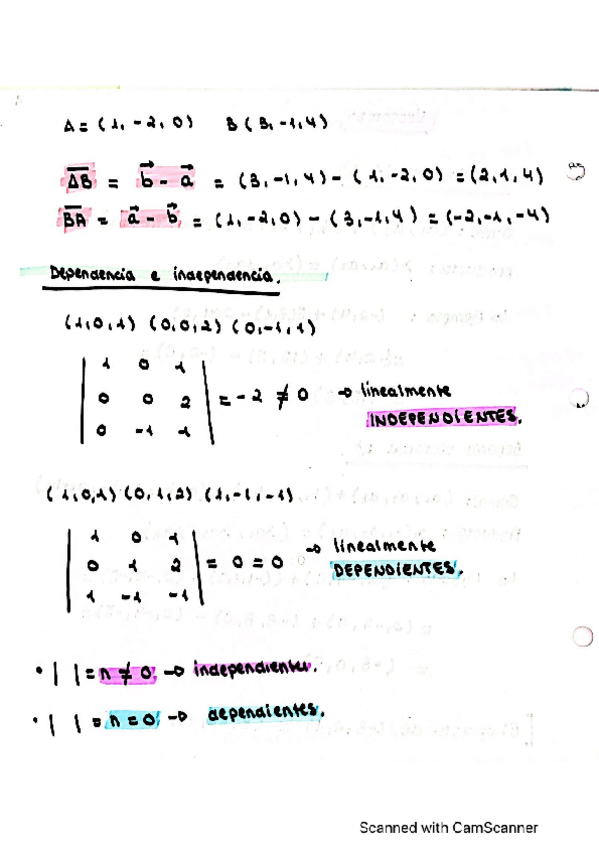 A = (1, -2, 0) B (3, -1, 4)
AB = b - a = (3, -1, 4) - (1, -2, 0) = (2, 1, 4)
BA = a - b = (1, -2, 0) - (3, -1, 4) = (-2, -1, -4)
Dependencia e independencia.
(1,0,1) (0,0,2) (0,-1,1)
1 0 1
0 0 2 = -2 ≠ 0 → linealmente
0 -1 1 INDEPENDIENTES.
(1,0,1) (0,1,2) (1,-1,-1)
1 0 1
0 1 2 = 0 = 0 → linealmente
1 -1 -1 DEPENDIENTES.
• | | = n ≠ 0 → independientes.
• | | = n = 0 → dependientes.
Scanned with CamScanner